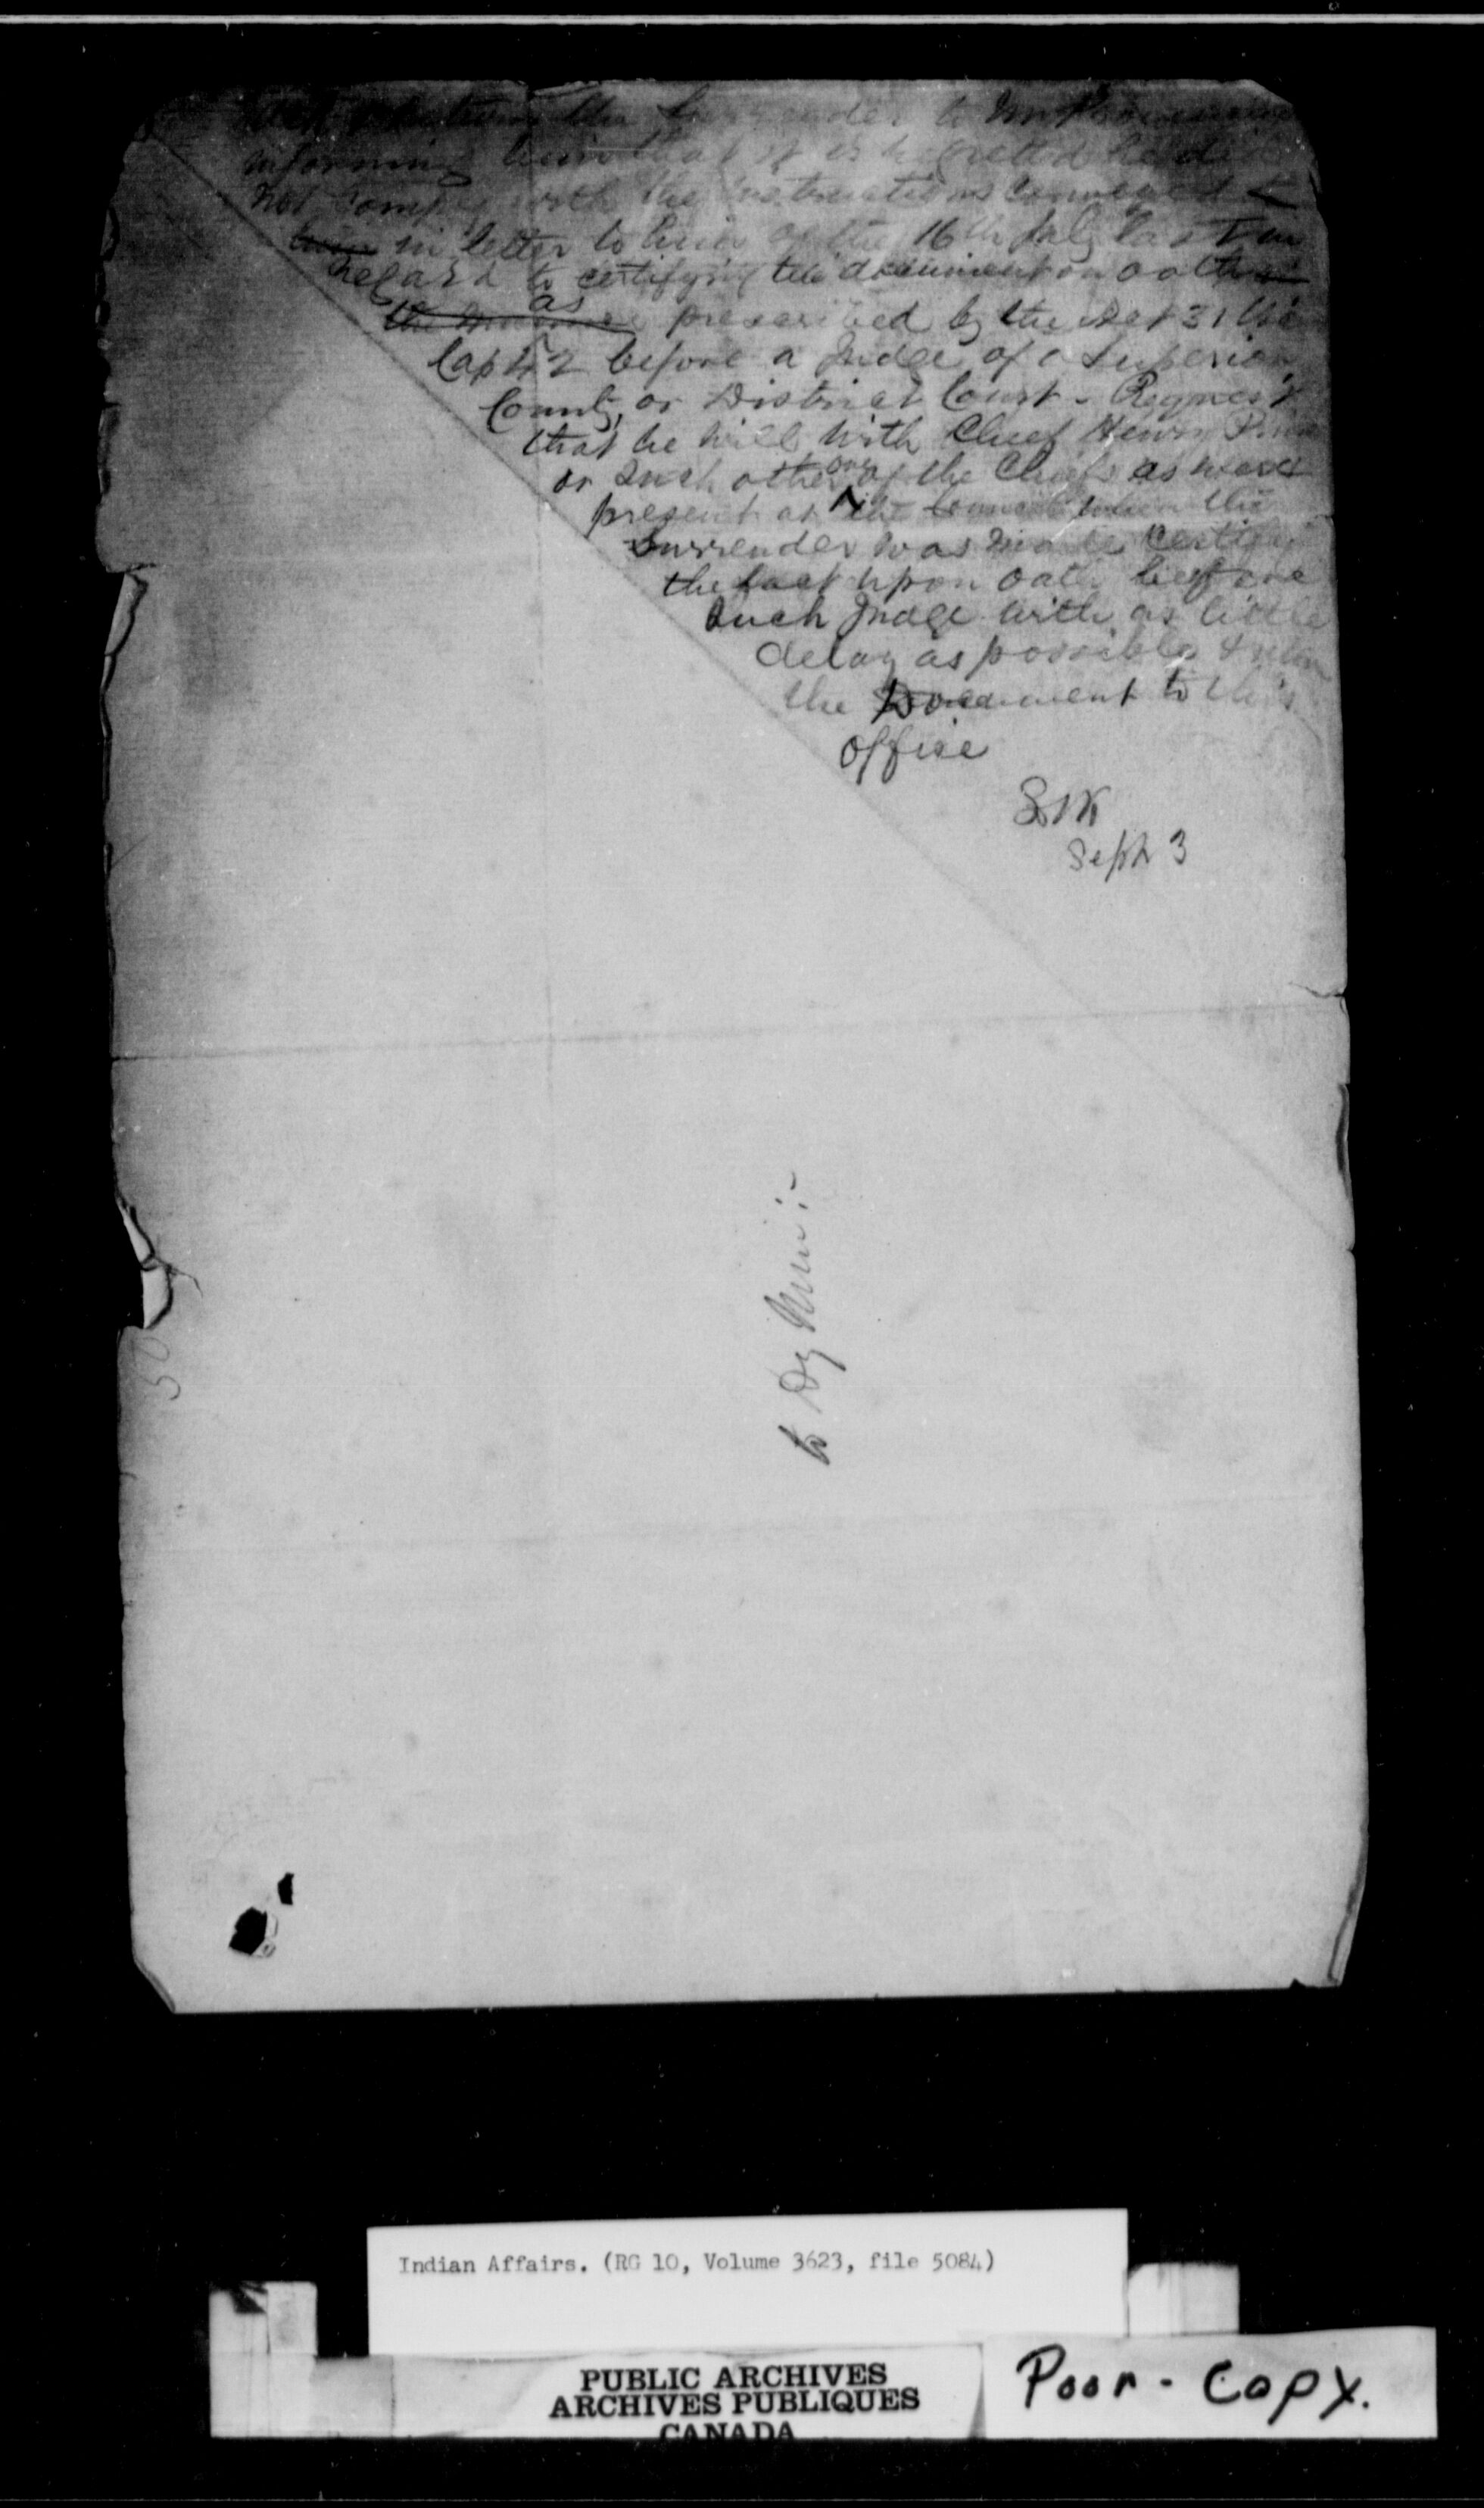 the surrender to Mr
informing him that it is regretted he did
not comply with the instructions conveyed
in letter to him of the 16th July last in
regard to certifying the document on oath
as prescribed by the Act 31 Vic
Cap 42 before a Judge of a Superior,
County, or District Court - Request
that he will with Chief Henry
or such other one of the Chiefs as were
present at the Council when the
surrender was made certify
the fact upon oath before
such Judge with as little
delay as possible & return
the Document to this
office
Sept 3
to Dy Min:
50
Indian Affairs. (RG 10, Volume 3623, file 5084)
PUBLIC ARCHIVES
ARCHIVES PUBLIQUES
CANADA
Poor - Copy.